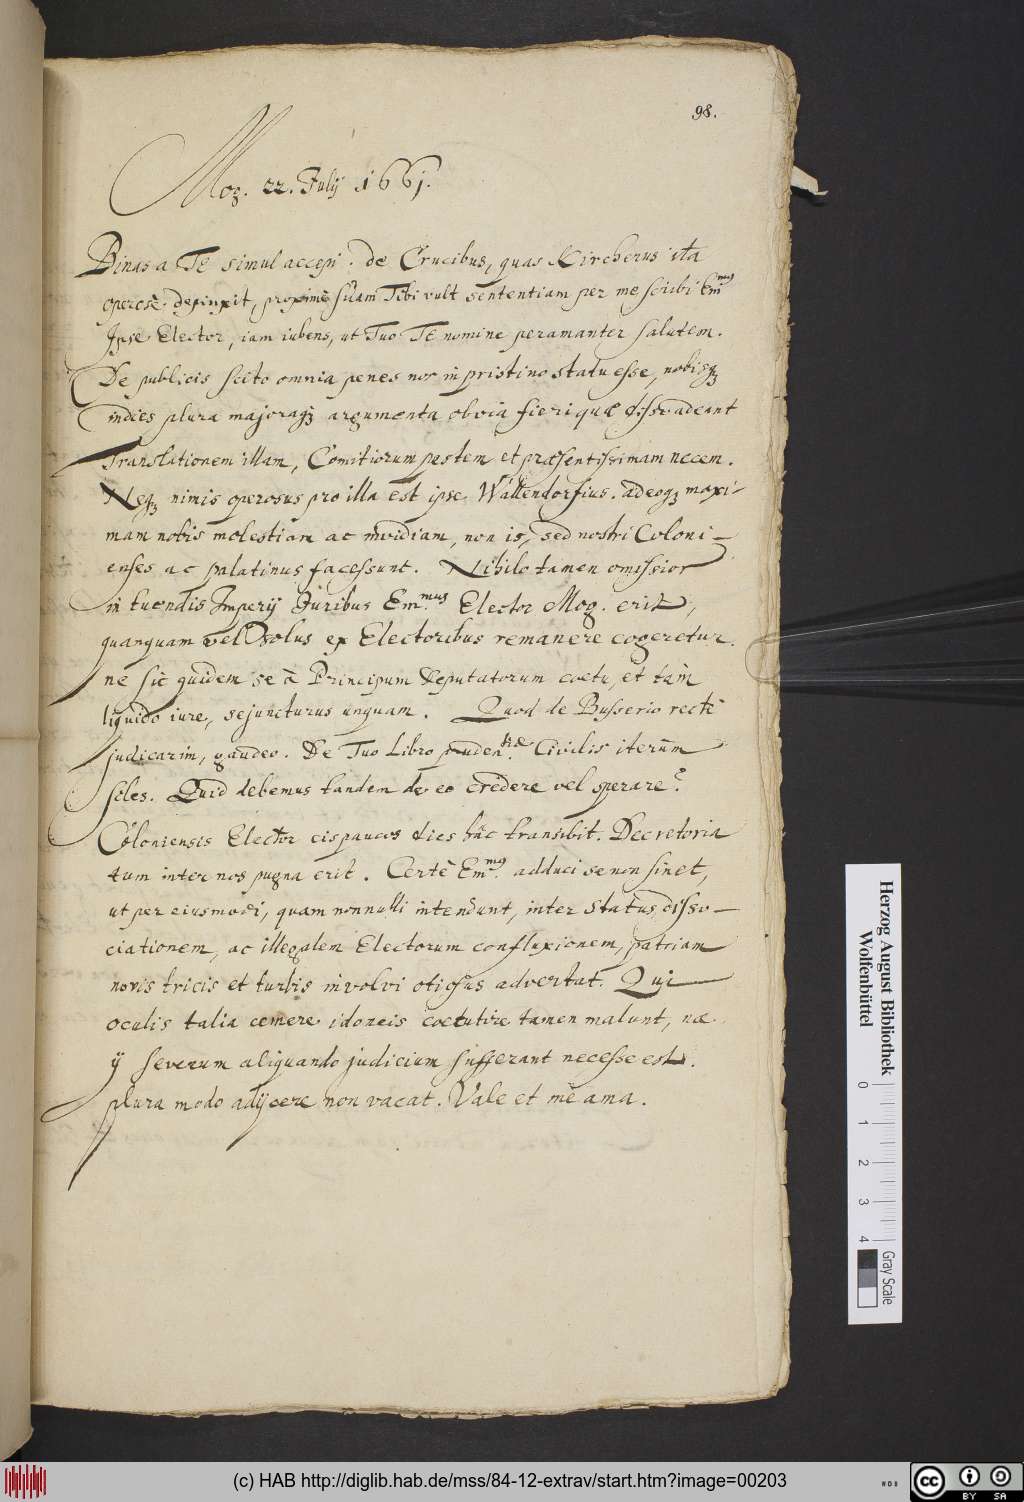 98.
Mog. 22. Julij 1661.
Binas a Te simul accepi. de Crucibus, quas Kircherus ita
operosè depinxit, proximè suam Tibi vult sententiam per me scribi Em.mus
Ipse Elector, iam iubens, ut Tuo Te nomine peramanter salutem.
De publicis scito omnia penes nos in pristino statu esse, nobisq3
indies plura majoraq3 argumenta obvia fieri quæ dissvadeant
Translationem illam, Comitiorum pestem et præsentissimam necem.
Neq3 nimis operosus pro illa est ipse Wallendorfius. adeoq3 maxi-
mam nobis molestiam ac invidiam, non is, sed nostri Coloni-
enses ac palatinus facessunt. Nihilo tamen omissior
in tuendis Imperij Juribus Em.mus Elector Mog. erit,
quanquam vel solus ex Electoribus remanere cogeretur.
ne sic quidem se à Principum Deputatorum coetu, et tàm
liquido iure, sejuncturus unquam. Quod de Busserio rectè
judicarim, gaudeo. De Tuo Libro pruden.tiæ Civilis iterùm
siles. Quid debemus tandem de eo credere vel sperare?
Coloniensis Elector cis paucos dies hàc transibit. Decretoria
tum inter nos pugna erit. Certè Em.mus adduci se non sinet,
ut per eiusmodi, quam nonnulli intendunt, inter Status disso-
ciationem, ac illegalem Electorum confluxionem, patriam
novis tricis et turbis involvi otiosus advertat. Qui
oculis talia cernere idoneis coecutire tamen malunt, næ
ij severum aliquando judicium sufferant necesse est.
plura modo adijcere non vacat. Vale et me ama.
Herzog August Bibliothek
Wolfenbüttel
0 1 2 3 4
Gray Scale
(c) HAB http://diglib.hab.de/mss/84-12-extrav/start.htm?image=00203
cc BY SA